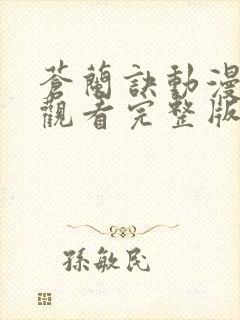 蒼蘭訣動漫
觀看完整版
孫敏民